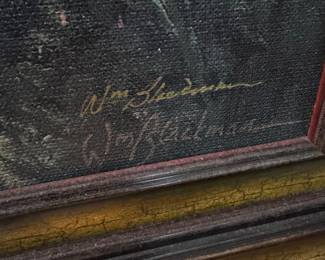 Wm Blackman
Wm Blackman